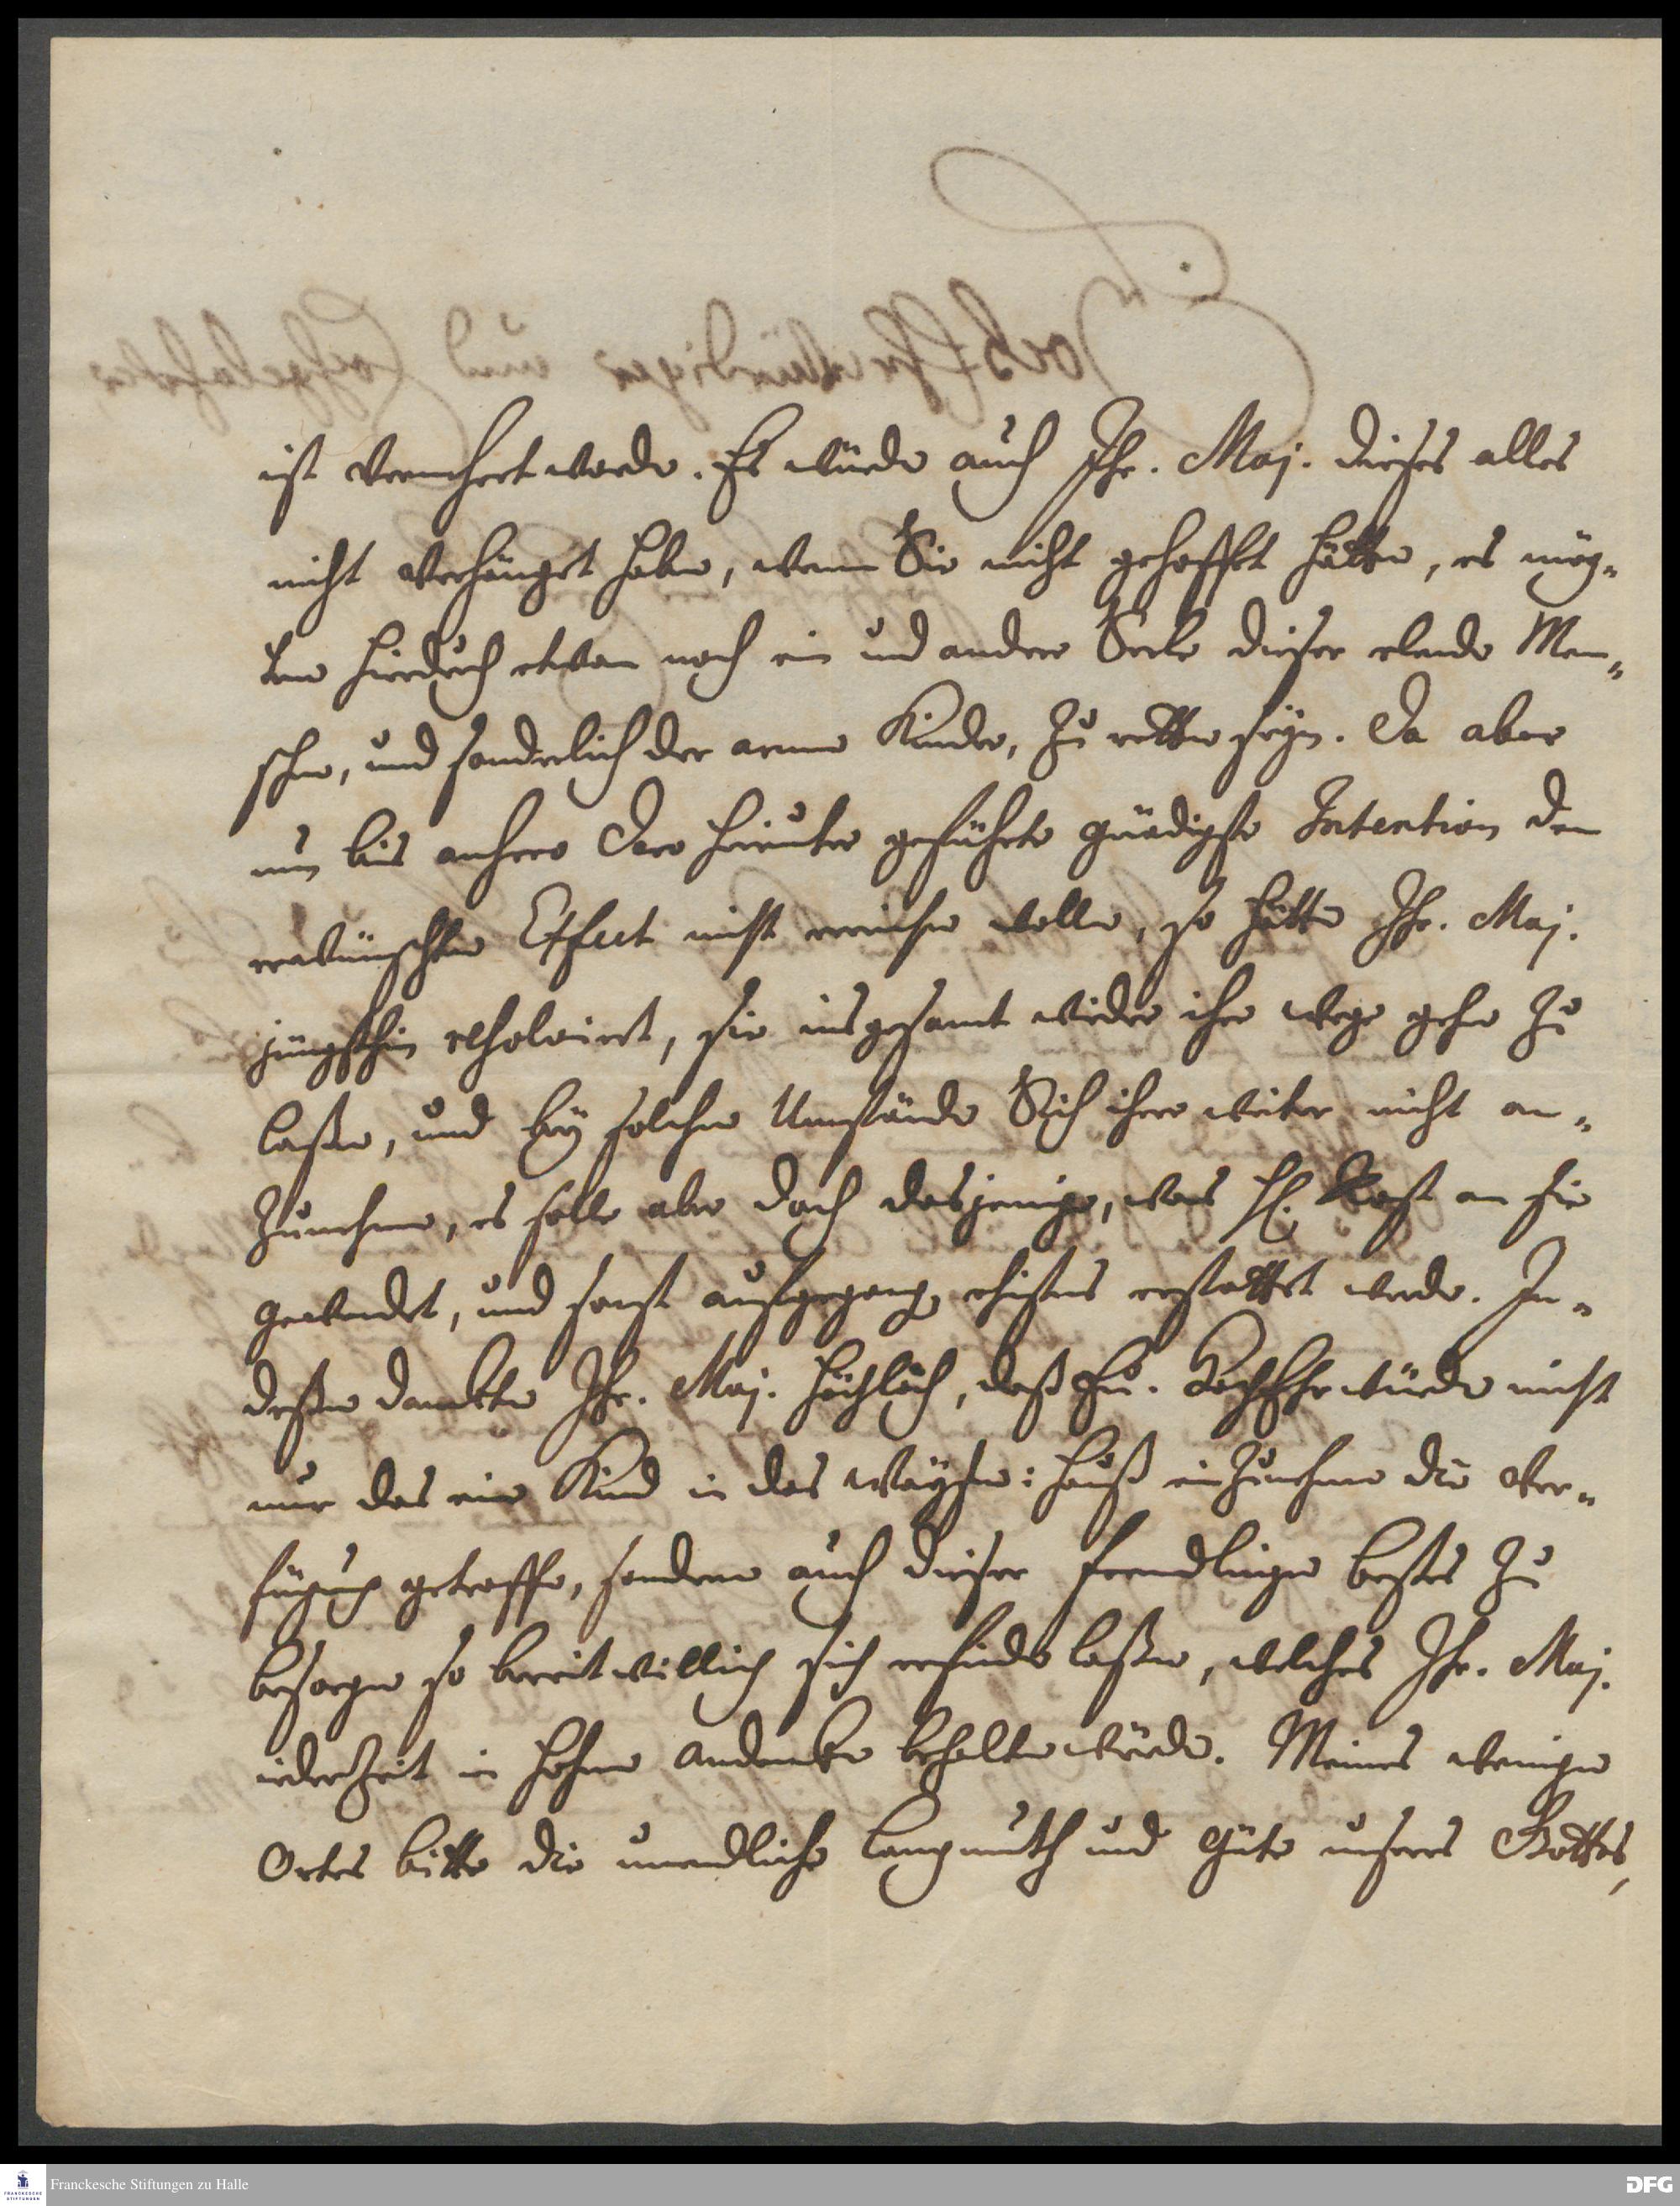 ist vermehret worden. Es würden auch Ihr. Maj. dieses alles
nicht verhänget haben, wenn Sie nicht gehoffet hätten, es mög-
ten hierdurch etwan noch ein und andere Seele dieser elenden Men-
schen, und sonderlich der armen Kinder, zu retten seyn. Da aber
nun bis anhero Dero hierunter geführte gnädigste Intention den
erwünschten Effect nicht erreichen wollen, so hätten Ihr. Maj.
jüngsthin resolviret, sie insgesamt wieder ihre wege gehen zu
laßen, und bey solchen Umständen Sich ihrer weiter nicht an-
zunehmen, es solle aber doch dasjenige, was H. Rost an sie
gewendet, und sonst aufgegangen, ehistens erstattet werden. In-
deßen danckten Ihr. Maj. höchlich, daß Eu. HochEhrwürden nicht
nur das eine Kind in das Wäysen-Hauß einzunehmen die Ver-
fügung getroffen, sondern auch dieser frembdlinge bestes zu
besorgen so bereitwillich sich erfinden laßen, welches Ihr. Maj.
iederzeit in hohen andencken behalten würden. Meines wenigen
Ortes bitte die unendliche Langmuth und Güte unseres Gottes,
Franckesche Stiftungen zu Halle
FRANCKESCHE
STIFTUNGEN
DFG